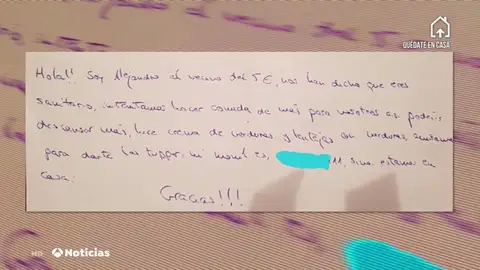 QUÉDATE EN CASA
Hola!! Soy Alejandro el vecino del 5ºE, nos han dicho que eres
sanitario, intentamos hacer comida de más para vosotros así podéis
descansar más, hice crema de verduras y lentejas con verduras,
para darte los tupper, mi movil es, 11, sino estamos en
casa.
Gracias!!!
Noticias